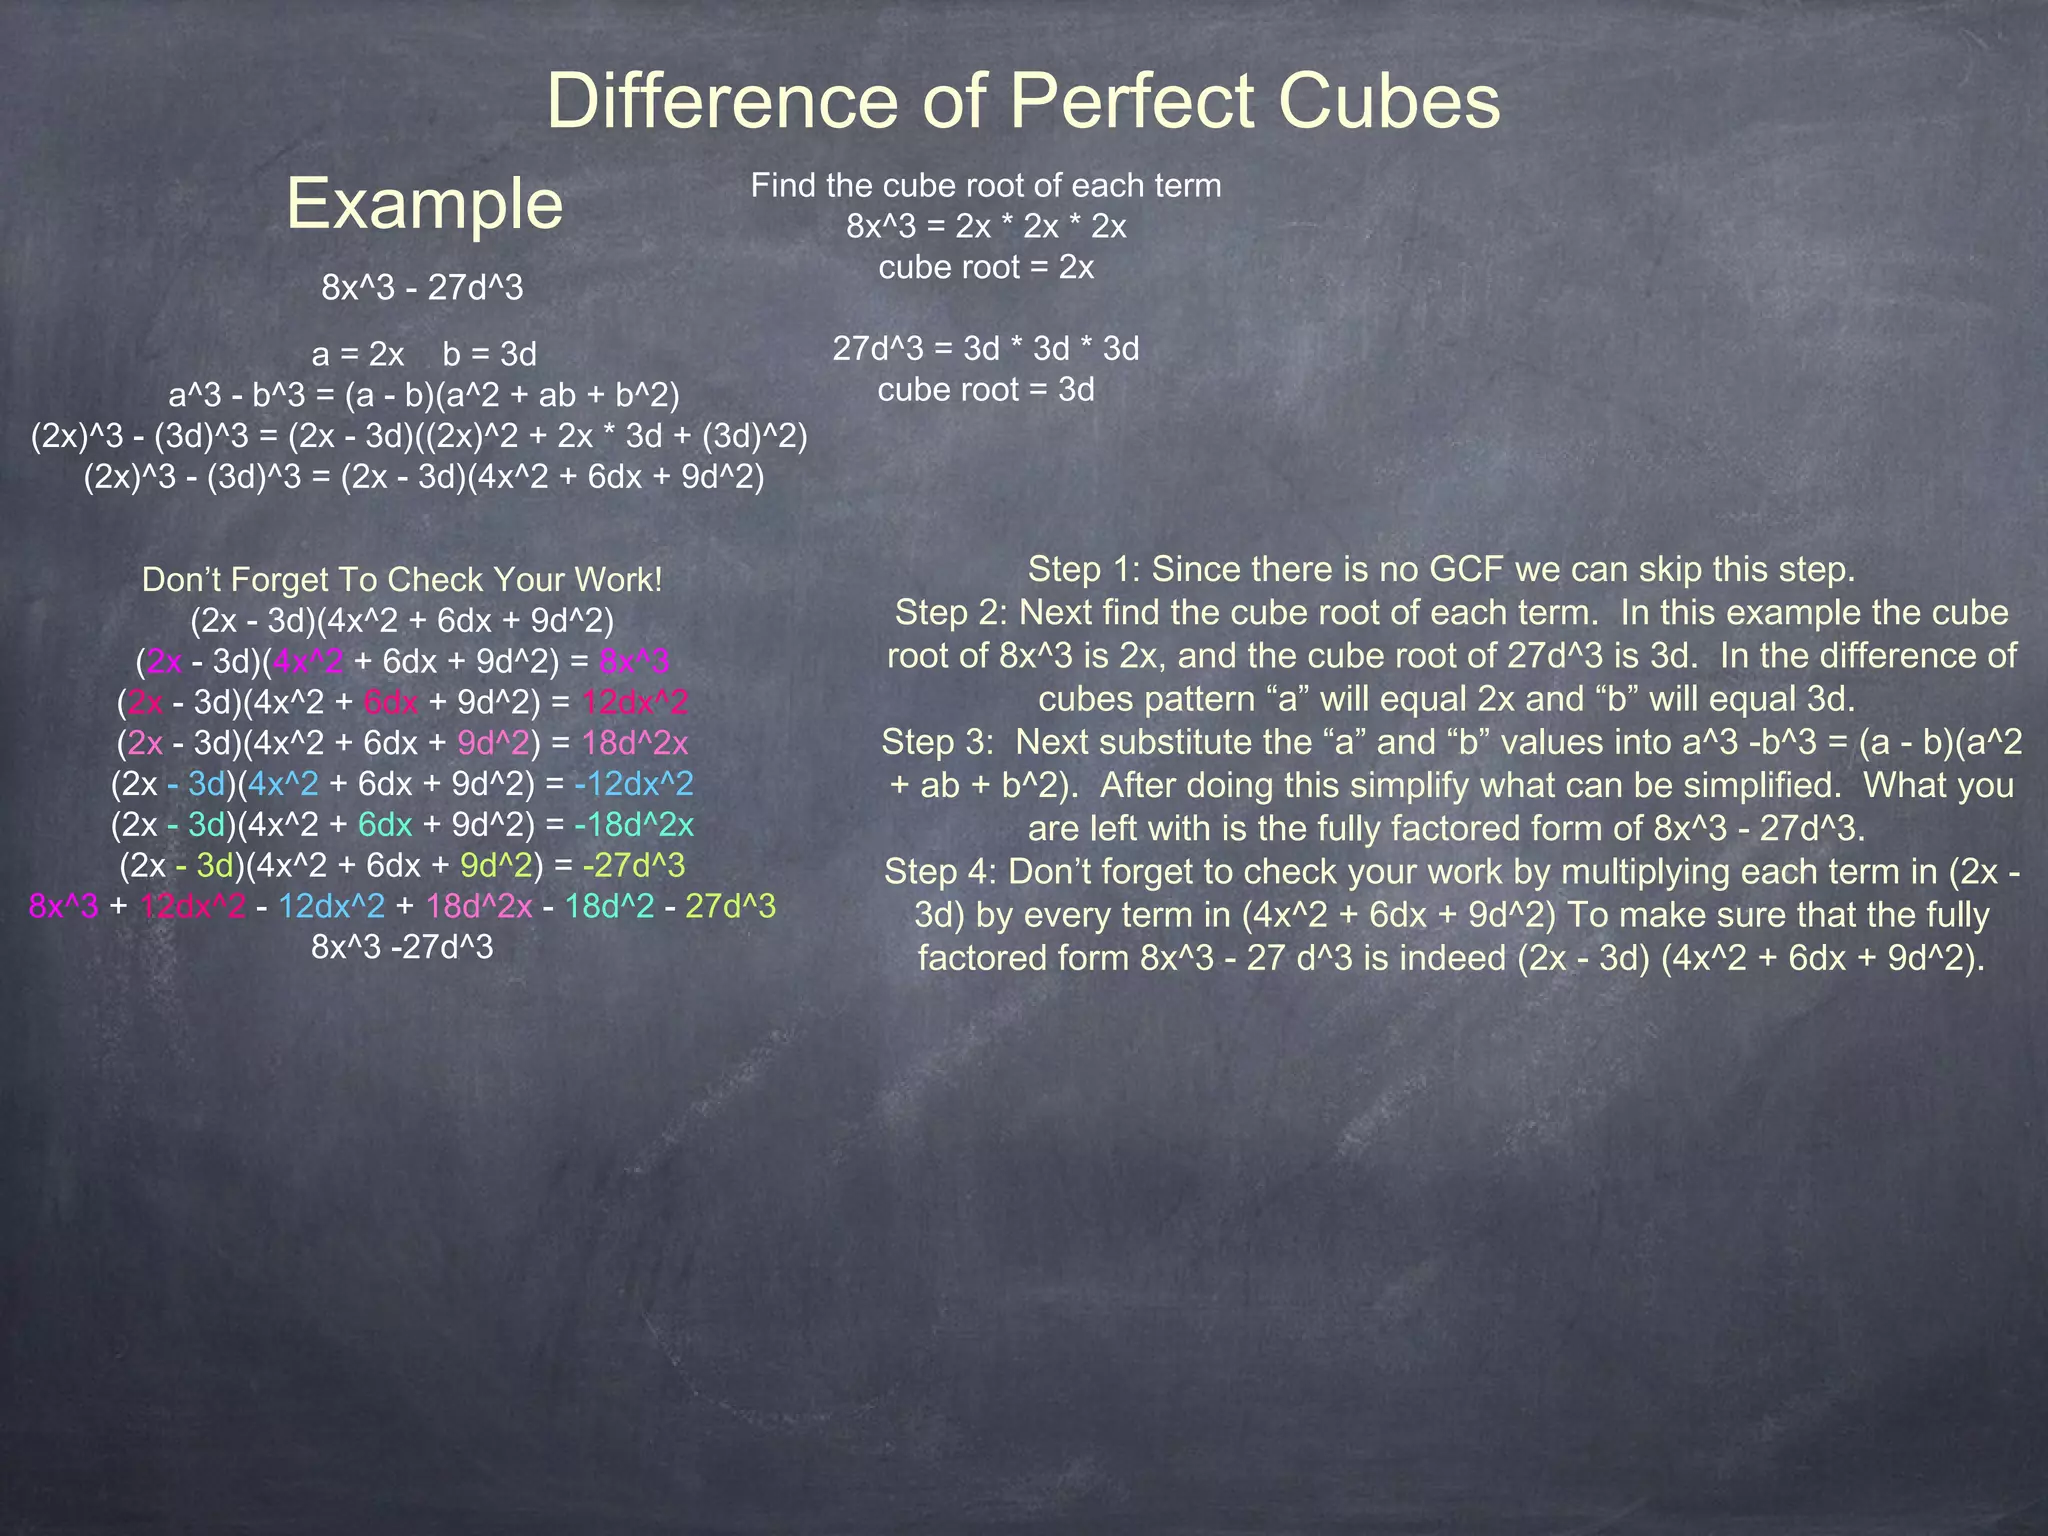 Difference of Perfect Cubes
Example
8x^3 - 27d^3
a = 2x    b = 3d
a^3 - b^3 = (a - b)(a^2 + ab + b^2)
(2x)^3 - (3d)^3 = (2x - 3d)((2x)^2 + 2x * 3d + (3d)^2)
(2x)^3 - (3d)^3 = (2x - 3d)(4x^2 + 6dx + 9d^2)
Find the cube root of each term
8x^3 = 2x * 2x * 2x
cube root = 2x
27d^3 = 3d * 3d * 3d
cube root = 3d
Don’t Forget To Check Your Work!
(2x - 3d)(4x^2 + 6dx + 9d^2)
(2x - 3d)(4x^2 + 6dx + 9d^2) = 8x^3
(2x - 3d)(4x^2 + 6dx + 9d^2) = 12dx^2
(2x - 3d)(4x^2 + 6dx + 9d^2) = 18d^2x
(2x - 3d)(4x^2 + 6dx + 9d^2) = -12dx^2
(2x - 3d)(4x^2 + 6dx + 9d^2) = -18d^2x
(2x - 3d)(4x^2 + 6dx + 9d^2) = -27d^3
8x^3 + 12dx^2 - 12dx^2 + 18d^2x - 18d^2 - 27d^3
8x^3 -27d^3
Step 1: Since there is no GCF we can skip this step.
Step 2: Next find the cube root of each term.  In this example the cube
root of 8x^3 is 2x, and the cube root of 27d^3 is 3d.  In the difference of
cubes pattern “a” will equal 2x and “b” will equal 3d.
Step 3:  Next substitute the “a” and “b” values into a^3 -b^3 = (a - b)(a^2
+ ab + b^2).  After doing this simplify what can be simplified.  What you
are left with is the fully factored form of 8x^3 - 27d^3.
Step 4: Don’t forget to check your work by multiplying each term in (2x -
3d) by every term in (4x^2 + 6dx + 9d^2) To make sure that the fully
factored form 8x^3 - 27 d^3 is indeed (2x - 3d) (4x^2 + 6dx + 9d^2).